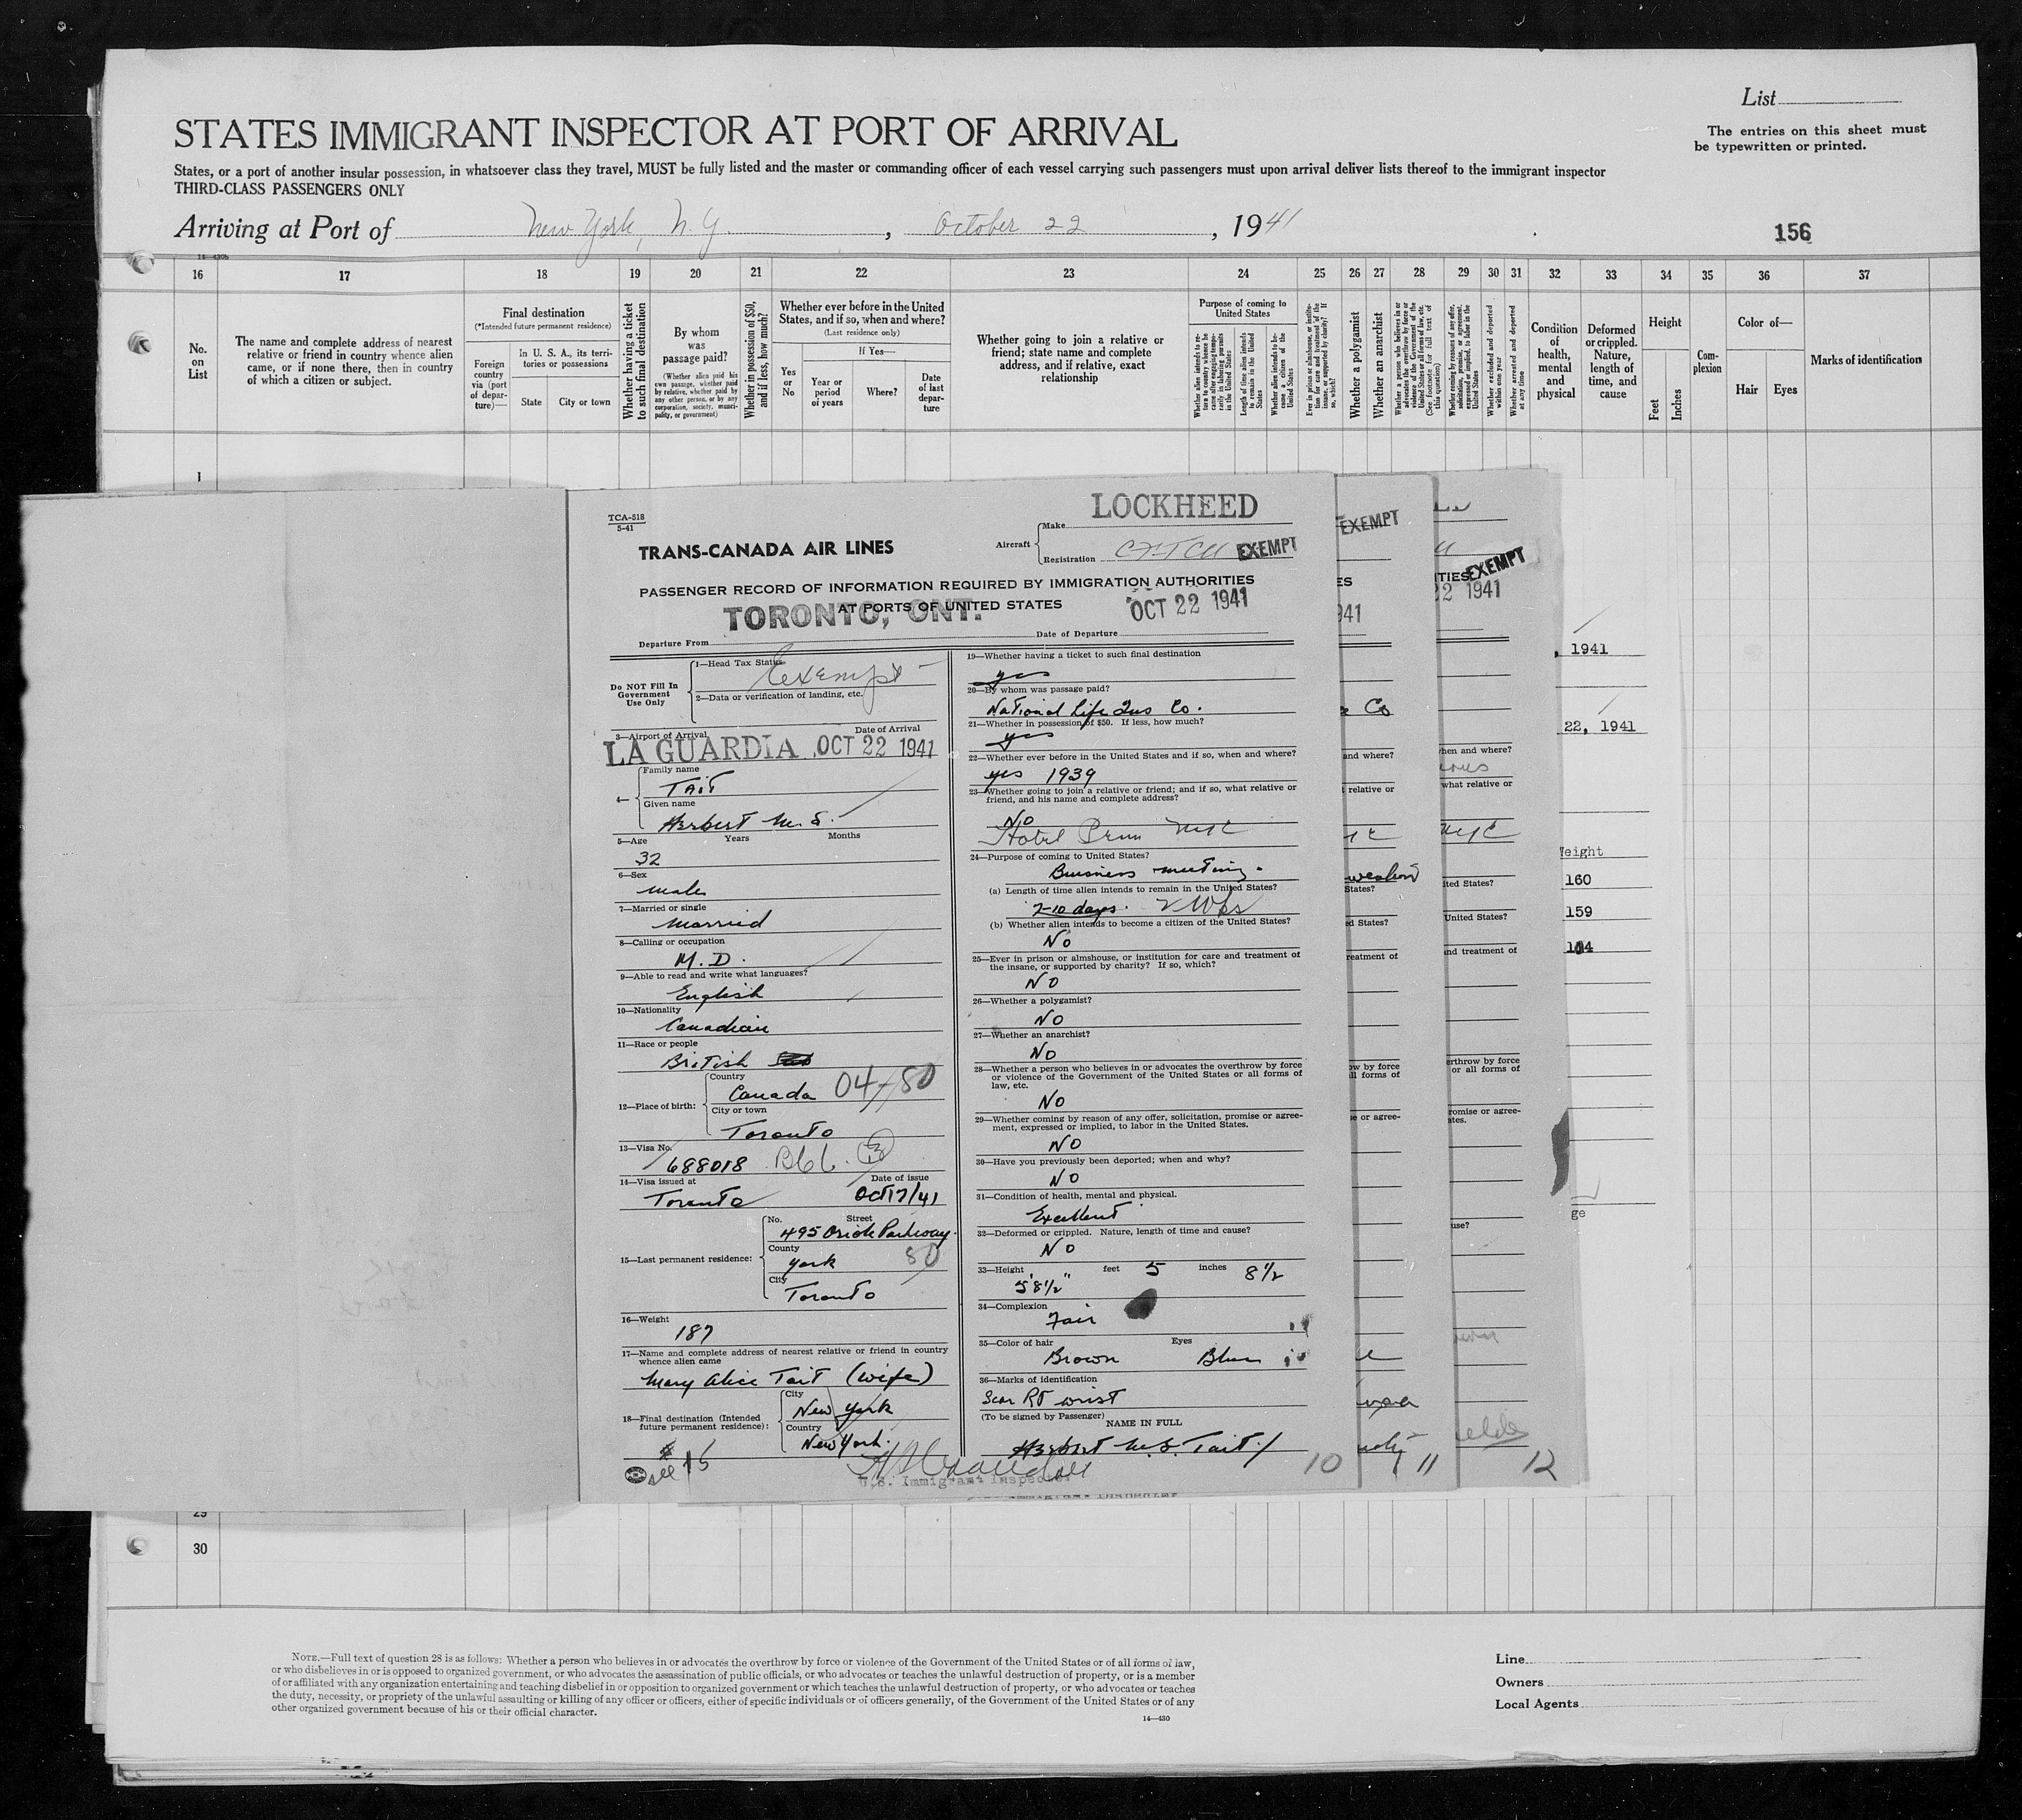 List
The entries on this sheet must
be typewritten or printed.
STATES IMMIGRANT INSPECTOR AT PORT OF ARRIVAL
States, or a port of another insular possession, in whatsoever class they travel, MUST be fully listed and the master or commanding officer of each vessel carrying such passengers must upon arrival deliver lists thereof to the immigrant inspector
THIRD-CLASS PASSENGERS ONLY
Arriving at Port of New York, N.Y. , October 22 , 1941
156
16 17 18 19 20 21 22 23 24 25 26 27 28 29 30 31 32 33 34 35 36 37
No. on List
The name and complete address of nearest
relative or friend in country whence alien
came, or if none there, then in country
of which a citizen or subject.
Final destination
(*Intended future permanent residence)
Foreign country via (port of departure)—
In U. S. A., its territories or possessions
State City or town
Whether having a ticket to such final destination
By whom was passage paid?
(Whether alien paid his own passage, whether paid by relative, whether paid by any other person, or by any corporation, society, municipality, or government)
Whether in possession of $50, and if less, how much?
Whether ever before in the United
States, and if so, when and where?
(Last residence only)
Yes or No
If Yes—
Year or period of years
Where?
Date of last departure
Whether going to join a relative or
friend; state name and complete
address, and if relative, exact
relationship
Purpose of coming to United States
Length of time alien intends to remain in the United States
Whether alien intends to become a citizen of the United States
Whether a polygamist
Whether an anarchist
Whether excluded and deported within one year
Whether arrested and deported at any time
Condition of health, mental and physical
Deformed or crippled. Nature, length of time, and cause
Height
Feet Inches
Complexion
Color of—
Hair Eyes
Marks of identification
1
TCA-518
5-41
TRANS-CANADA AIR LINES
Aircraft
Make LOCKHEED
Registration CF-TCU EXEMPT
PASSENGER RECORD OF INFORMATION REQUIRED BY IMMIGRATION AUTHORITIES
AT PORTS OF UNITED STATES
TORONTO, ONT.
OCT 22 1941
Departure From Date of Departure
Do NOT Fill In
Government
Use Only
1—Head Tax Status
Exempt
2—Data or verification of landing, etc.
3—Airport of Arrival Date of Arrival
LA GUARDIA OCT 22 1941
4— Family name
TAIT
Given name
Herbert M. S.
5—Age Years Months
32
6—Sex
male
7—Married or single
Married
8—Calling or occupation
M. D.
9—Able to read and write what languages?
English
10—Nationality
Canadian
11—Race or people
British
12—Place of birth: Country
Canada 04-80
City or town
Toronto
13—Visa No.
688018
14—Visa issued at Date of issue
Toronto Oct 17/41
15—Last permanent residence:
No. Street
495 Oriole Parkway.
County
York 80
City
Toronto
16—Weight
187
17—Name and complete address of nearest relative or friend in country
whence alien came
Mary Alice Tait (wife)
18—Final destination (Intended
future permanent residence):
City
New York
Country
New York.
see 15
U.S. Immigrant Inspector
19—Whether having a ticket to such final destination
yes
20—By whom was passage paid?
National Life Ins Co.
21—Whether in possession of $50. If less, how much?
yes
22—Whether ever before in the United States and if so, when and where?
yes 1939
23—Whether going to join a relative or friend; and if so, what relative or
friend, and his name and complete address?
No
Hotel Penn NYC
24—Purpose of coming to United States?
Business meeting.
(a) Length of time alien intends to remain in the United States?
7-10 days. 2 Wks
(b) Whether alien intends to become a citizen of the United States?
No
25—Ever in prison or almshouse, or institution for care and treatment of
the insane, or supported by charity? If so, which?
NO
26—Whether a polygamist?
NO
27—Whether an anarchist?
NO
28—Whether a person who believes in or advocates the overthrow by force
or violence of the Government of the United States or all forms of
law, etc.
NO
29—Whether coming by reason of any offer, solicitation, promise or agree-
ment, expressed or implied, to labor in the United States.
NO
30—Have you previously been deported; when and why?
NO
31—Condition of health, mental and physical.
Excellent
32—Deformed or crippled. Nature, length of time and cause?
NO
33—Height feet 5 inches 8 1/2
5' 8 1/2"
34—Complexion
Fair
35—Color of hair Eyes
Brown Blue
36—Marks of identification
Scar RT wrist
(To be signed by Passenger) NAME IN FULL
Herbert M. S. Tait
10
EXEMPT
11
EXEMPT
22 1941
12
, 1941
22, 1941
160
159
29
30
NOTE.—Full text of question 28 is as follows: Whether a person who believes in or advocates the overthrow by force or violence of the Government of the United States or of all forms of law,
or who disbelieves in or is opposed to organized government, or who advocates the assassination of public officials, or who advocates or teaches the unlawful destruction of property, or is a member
of or affiliated with any organization entertaining and teaching disbelief in or opposition to organized government or which teaches the unlawful destruction of property, or who advocates or teaches
the duty, necessity, or propriety of the unlawful assaulting or killing of any officer or officers, either of specific individuals or of officers generally, of the Government of the United States or of any
other organized government because of his or their official character.
14—430
Line
Owners
Local Agents